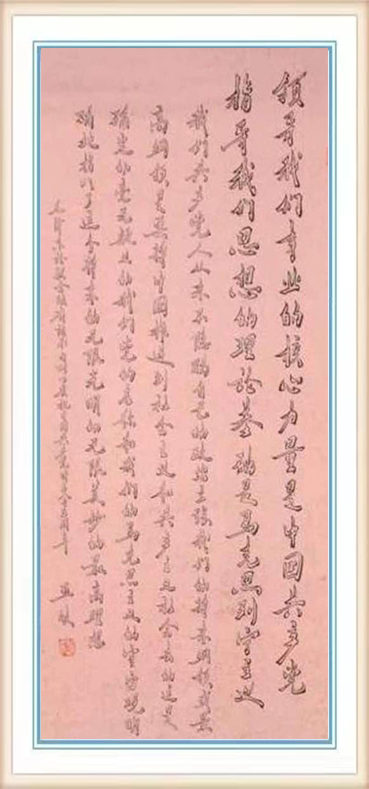 领导我们事业的核心力量是中国共产党
指导我们思想的理论基础是马克思列宁主义
我们共产党人从来不隐瞒自己的政治主张我们的将来纲领或最
高纲领是要将中国推进到社会主义和共产主义社会去的这是
确定的毫无疑义的我们党的名称和我们的马克思主义的宇宙观明
确地指明了这个将来的无限光明的无限美妙的最高理想
毛泽东论